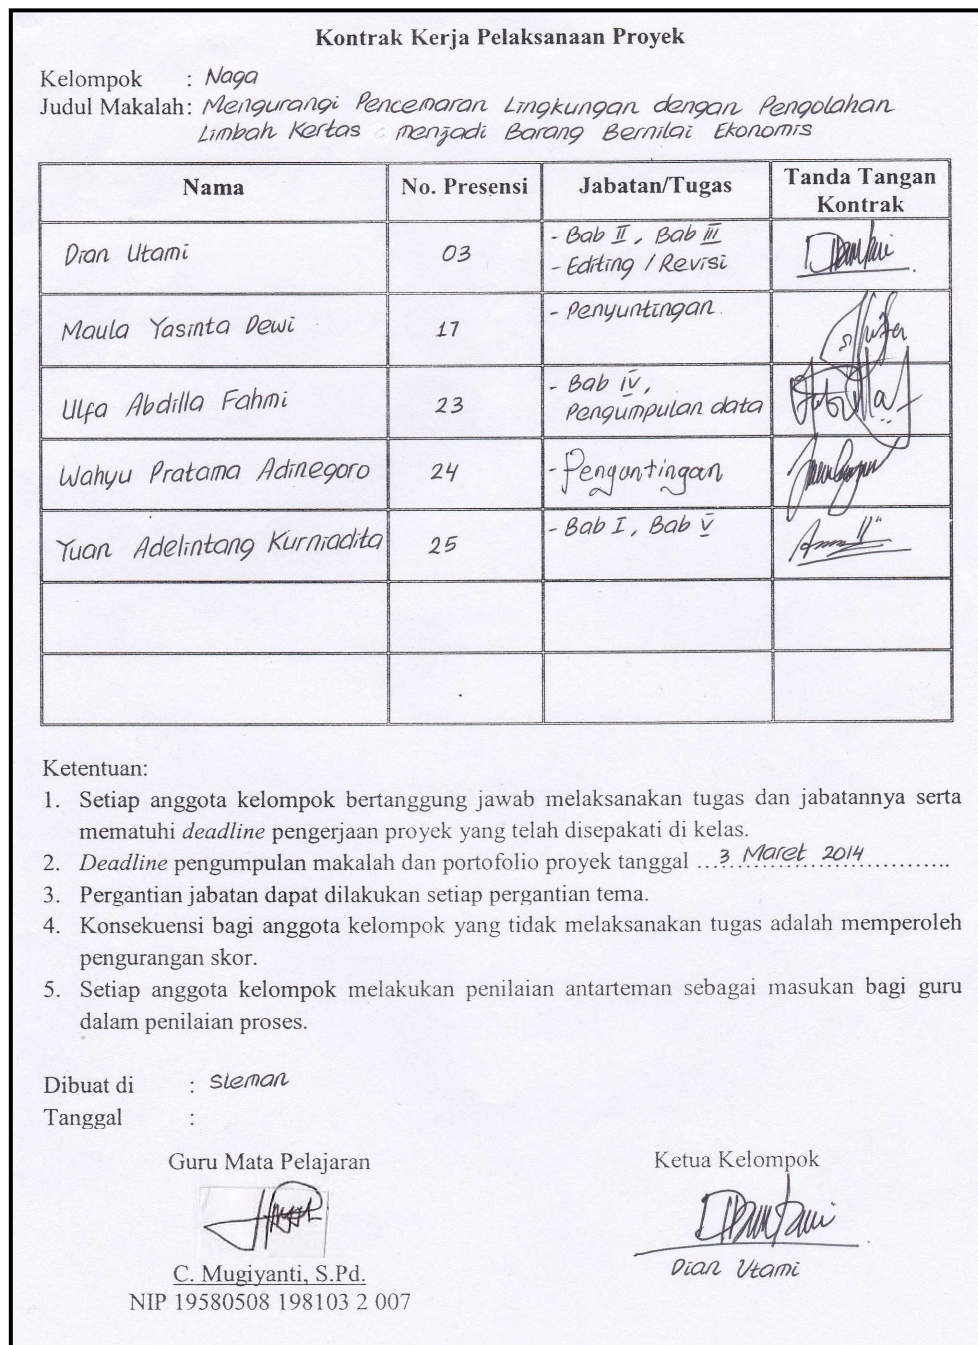 Kontrak Kerja Pelaksanaan Proyek
Kelompok : Naga
Judul Makalah: Mengurangi Pencemaran Lingkungan dengan Pengolahan
Limbah Kertas menjadi Barang Bernilai Ekonomis
Nama No. Presensi Jabatan/Tugas Tanda Tangan Kontrak
Dian Utami 03 - Bab II, Bab III
- Editing / Revisi
Maula Yasinta Dewi 17 - Penyuntingan
Ulfa Abdilla Fahmi 23 - Bab IV,
Pengumpulan data
Wahyu Pratama Adinegoro 24 - Penyuntingan
Yuan Adelintang Kurniadita 25 - Bab I, Bab V
Ketentuan:
1. Setiap anggota kelompok bertanggung jawab melaksanakan tugas dan jabatannya serta
mematuhi deadline pengerjaan proyek yang telah disepakati di kelas.
2. Deadline pengumpulan makalah dan portofolio proyek tanggal ...3 Maret 2014...........
3. Pergantian jabatan dapat dilakukan setiap pergantian tema.
4. Konsekuensi bagi anggota kelompok yang tidak melaksanakan tugas adalah memperoleh
pengurangan skor.
5. Setiap anggota kelompok melakukan penilaian antarteman sebagai masukan bagi guru
dalam penilaian proses.
Dibuat di : Sleman
Tanggal :
Guru Mata Pelajaran Ketua Kelompok
C. Mugiyanti, S.Pd. Dian Utami
NIP 19580508 198103 2 007